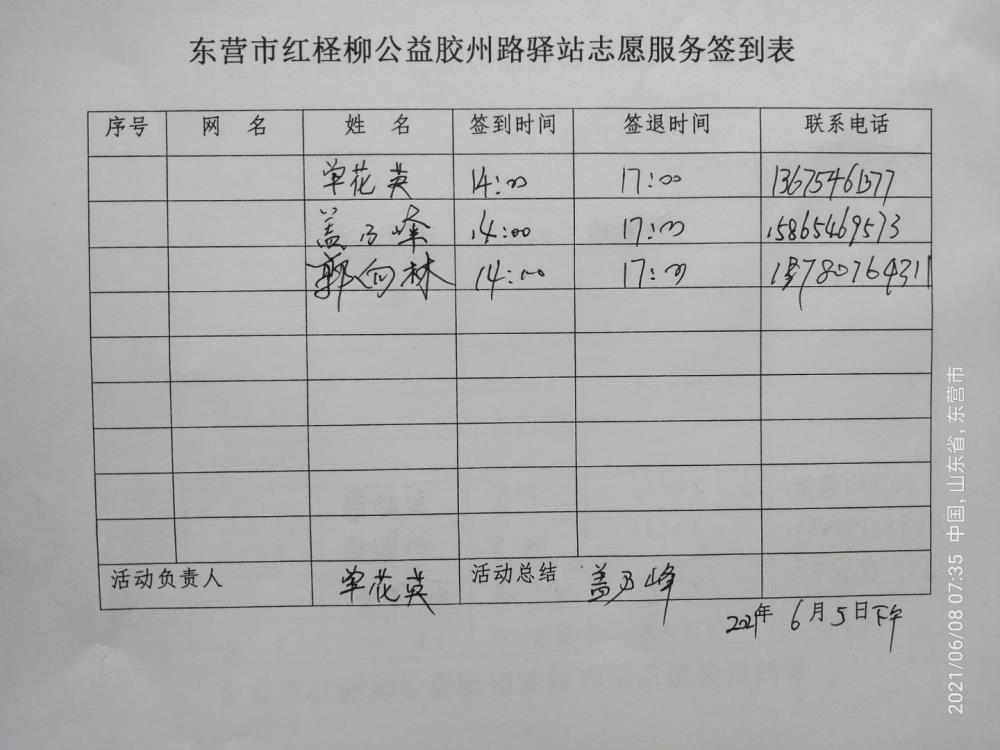 东营市红柽柳公益胶州路驿站志愿服务签到表
序号 网 名 姓 名 签到时间 签退时间 联系电话
单花英 14:00 17:00 13675461577
盖乃峰 14:00 17:00 15865469573
郭向林 14:00 17:00
活动负责人 单花英 活动总结 盖乃峰
2021年6月5日下午
2021/06/08 07:35 中国,山东省,东营市